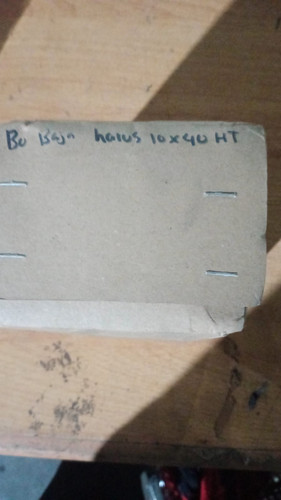 Bu Baja halus 10x40 HT